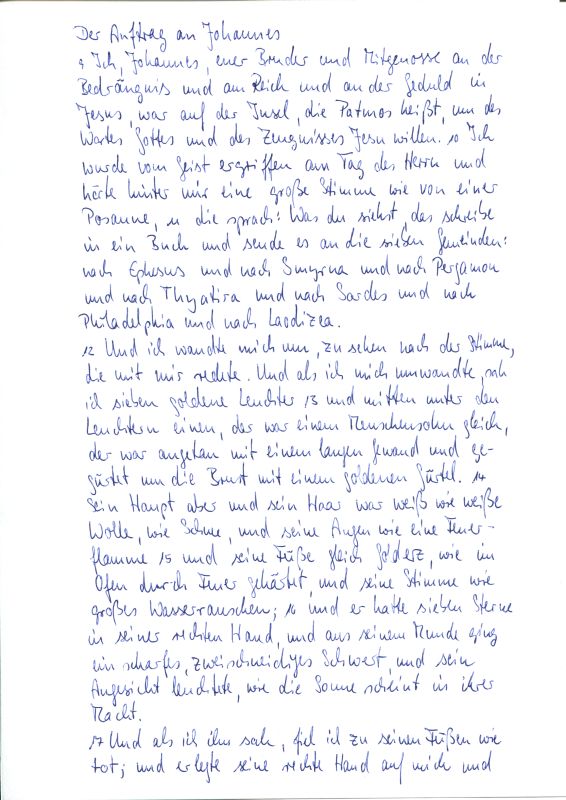 Der Auftrag an Johannes
9 Ich, Johannes, euer Bruder und Mitgenosse an der
Bedrängnis und am Reich und an der Geduld in
Jesus, war auf der Insel, die Patmos heißt, um des
Wortes Gottes und des Zeugnisses Jesu willen. 10 Ich
wurde vom Geist ergriffen am Tag des Herrn und
hörte hinter mir eine große Stimme wie von einer
Posaune, 11 die sprach: Was du siehst, das schreibe
in ein Buch und sende es an die sieben Gemeinden:
nach Ephesus und nach Smyrna und nach Pergamon
und nach Thyatira und nach Sardes und nach
Philadelphia und nach Laodizea.
12 Und ich wandte mich um, zu sehen nach der Stimme,
die mit mir redete. Und als ich mich umwandte, sah
ich sieben goldene Leuchter 13 und mitten unter den
Leuchtern einen, der war einem Menschensohn gleich,
der war angetan mit einem langen Gewand und ge-
gürtet um die Brust mit einem goldenen Gürtel. 14
Sein Haupt aber und sein Haar war weiß wie weiße
Wolle, wie Schnee, und seine Augen wie eine Feuer-
flamme 15 und seine Füße gleich Golderz, wie im
Ofen durch Feuer gehärtet, und seine Stimme wie
großes Wasserrauschen; 16 und er hatte sieben Sterne
in seiner rechten Hand, und aus seinem Munde ging
ein scharfes, zweischneidiges Schwert, und sein
Angesicht leuchtete, wie die Sonne scheint in ihrer
Macht.
17 Und als ich ihn sah, fiel ich zu seinen Füßen wie
tot; und er legte seine rechte Hand auf mich und